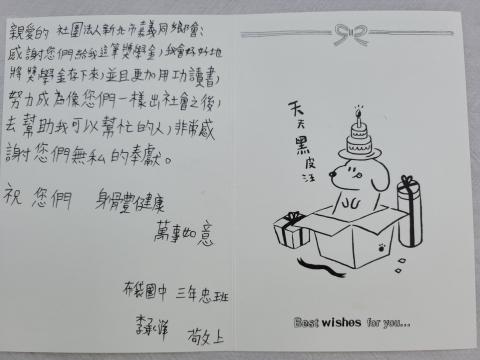 親愛的 社團法人新北市嘉義同鄉會:
感謝您們給我這筆獎學金,我會好好地
將獎學金存下來,並且更加用功讀書,
努力成為像您們一樣出社會之後,
去幫助我可以幫忙的人,非常感
謝您們無私的奉獻。
祝 您們 身體健康
萬事如意
布袋國中 三年忠班
敬上
天天黑皮汪
Best wishes for you...